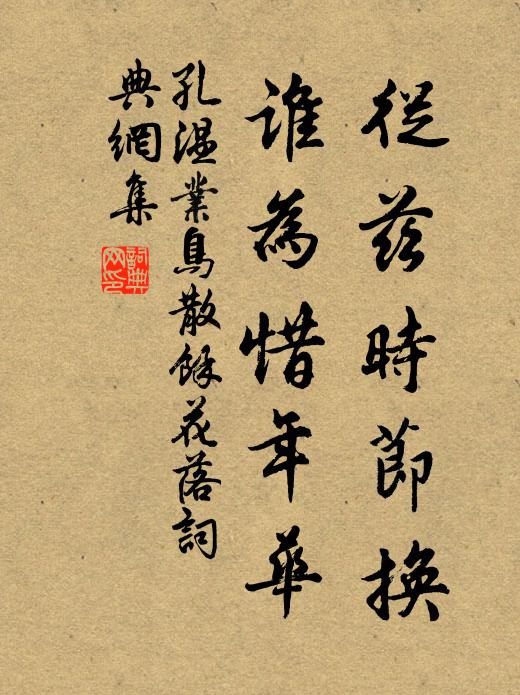 從茲時節換
誰為惜年華
孔溫業鳥散餘花落詞
典網集
詞典
网印